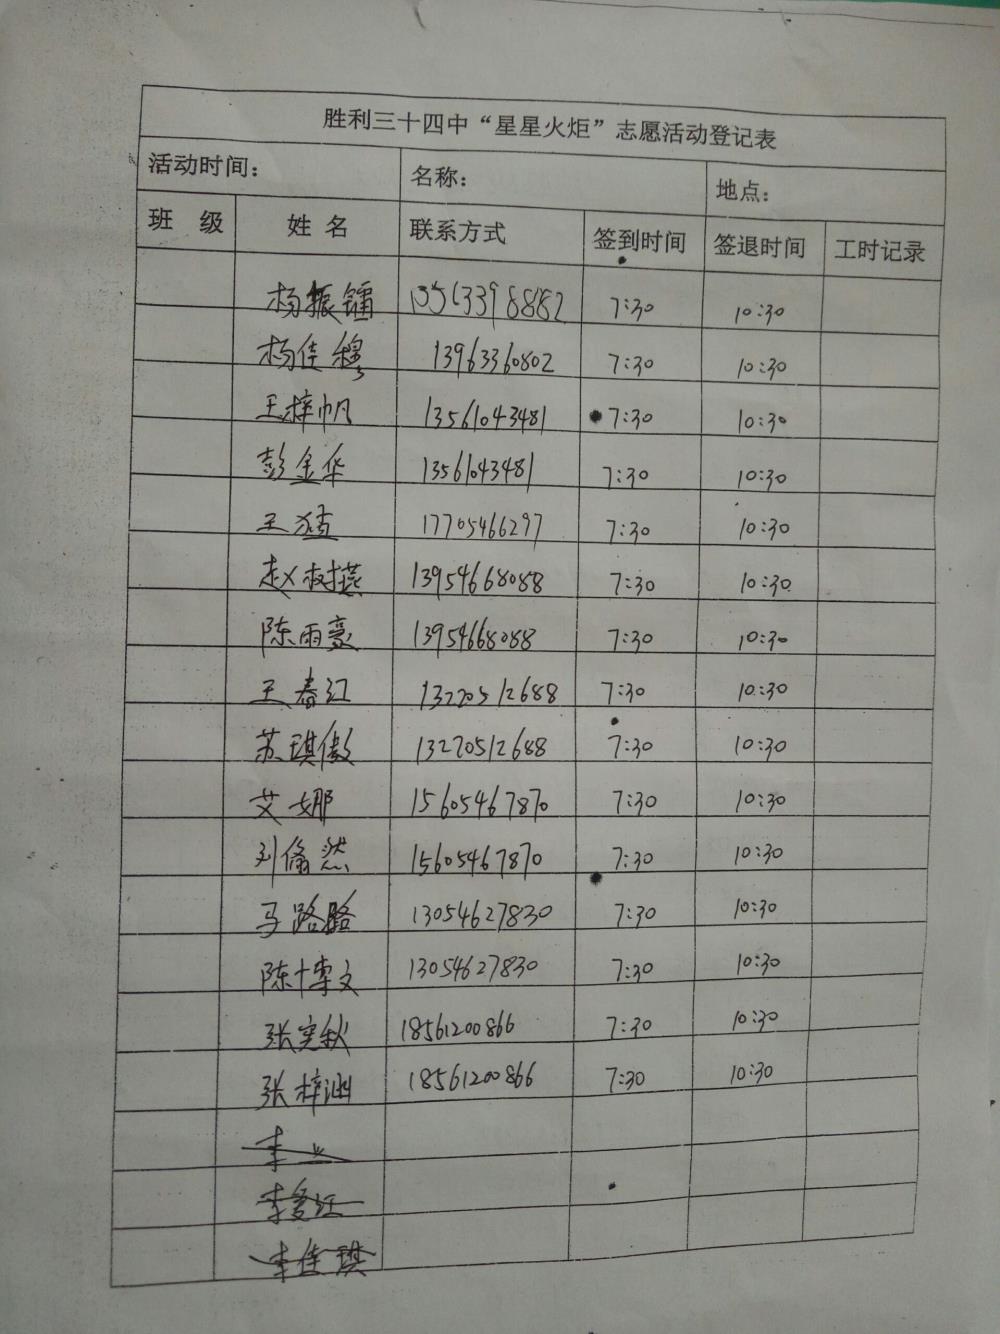 胜利三十四中“星星火炬”志愿活动登记表
活动时间: 名称: 地点:
班 级 姓 名 联系方式 签到时间 签退时间 工时记录
杨振镭 13563398882 7:30 10:30
杨佳穆 13963360802 7:30 10:30
王梓帆 13561043481 7:30 10:30
彭金华 1356143481 7:30 10:30
王 17705466297 7:30 10:30
赵树燕 13954668088 7:30 10:30
陈雨豪 13954668088 7:30 10:30
王春江 13220512688 7:30 10:30
苏琪傲 13220512688 7:30 10:30
艾娜 15605467870 7:30 10:30
刘脩然 15605467870 7:30 10:30
马路路 13054627830 7:30 10:30
陈博文 13054627830 7:30 10:30
张奕秋 18561200866 7:30 10:30
张梓涵 18561200866 7:30 10:30
李
李爱江
李佳琪